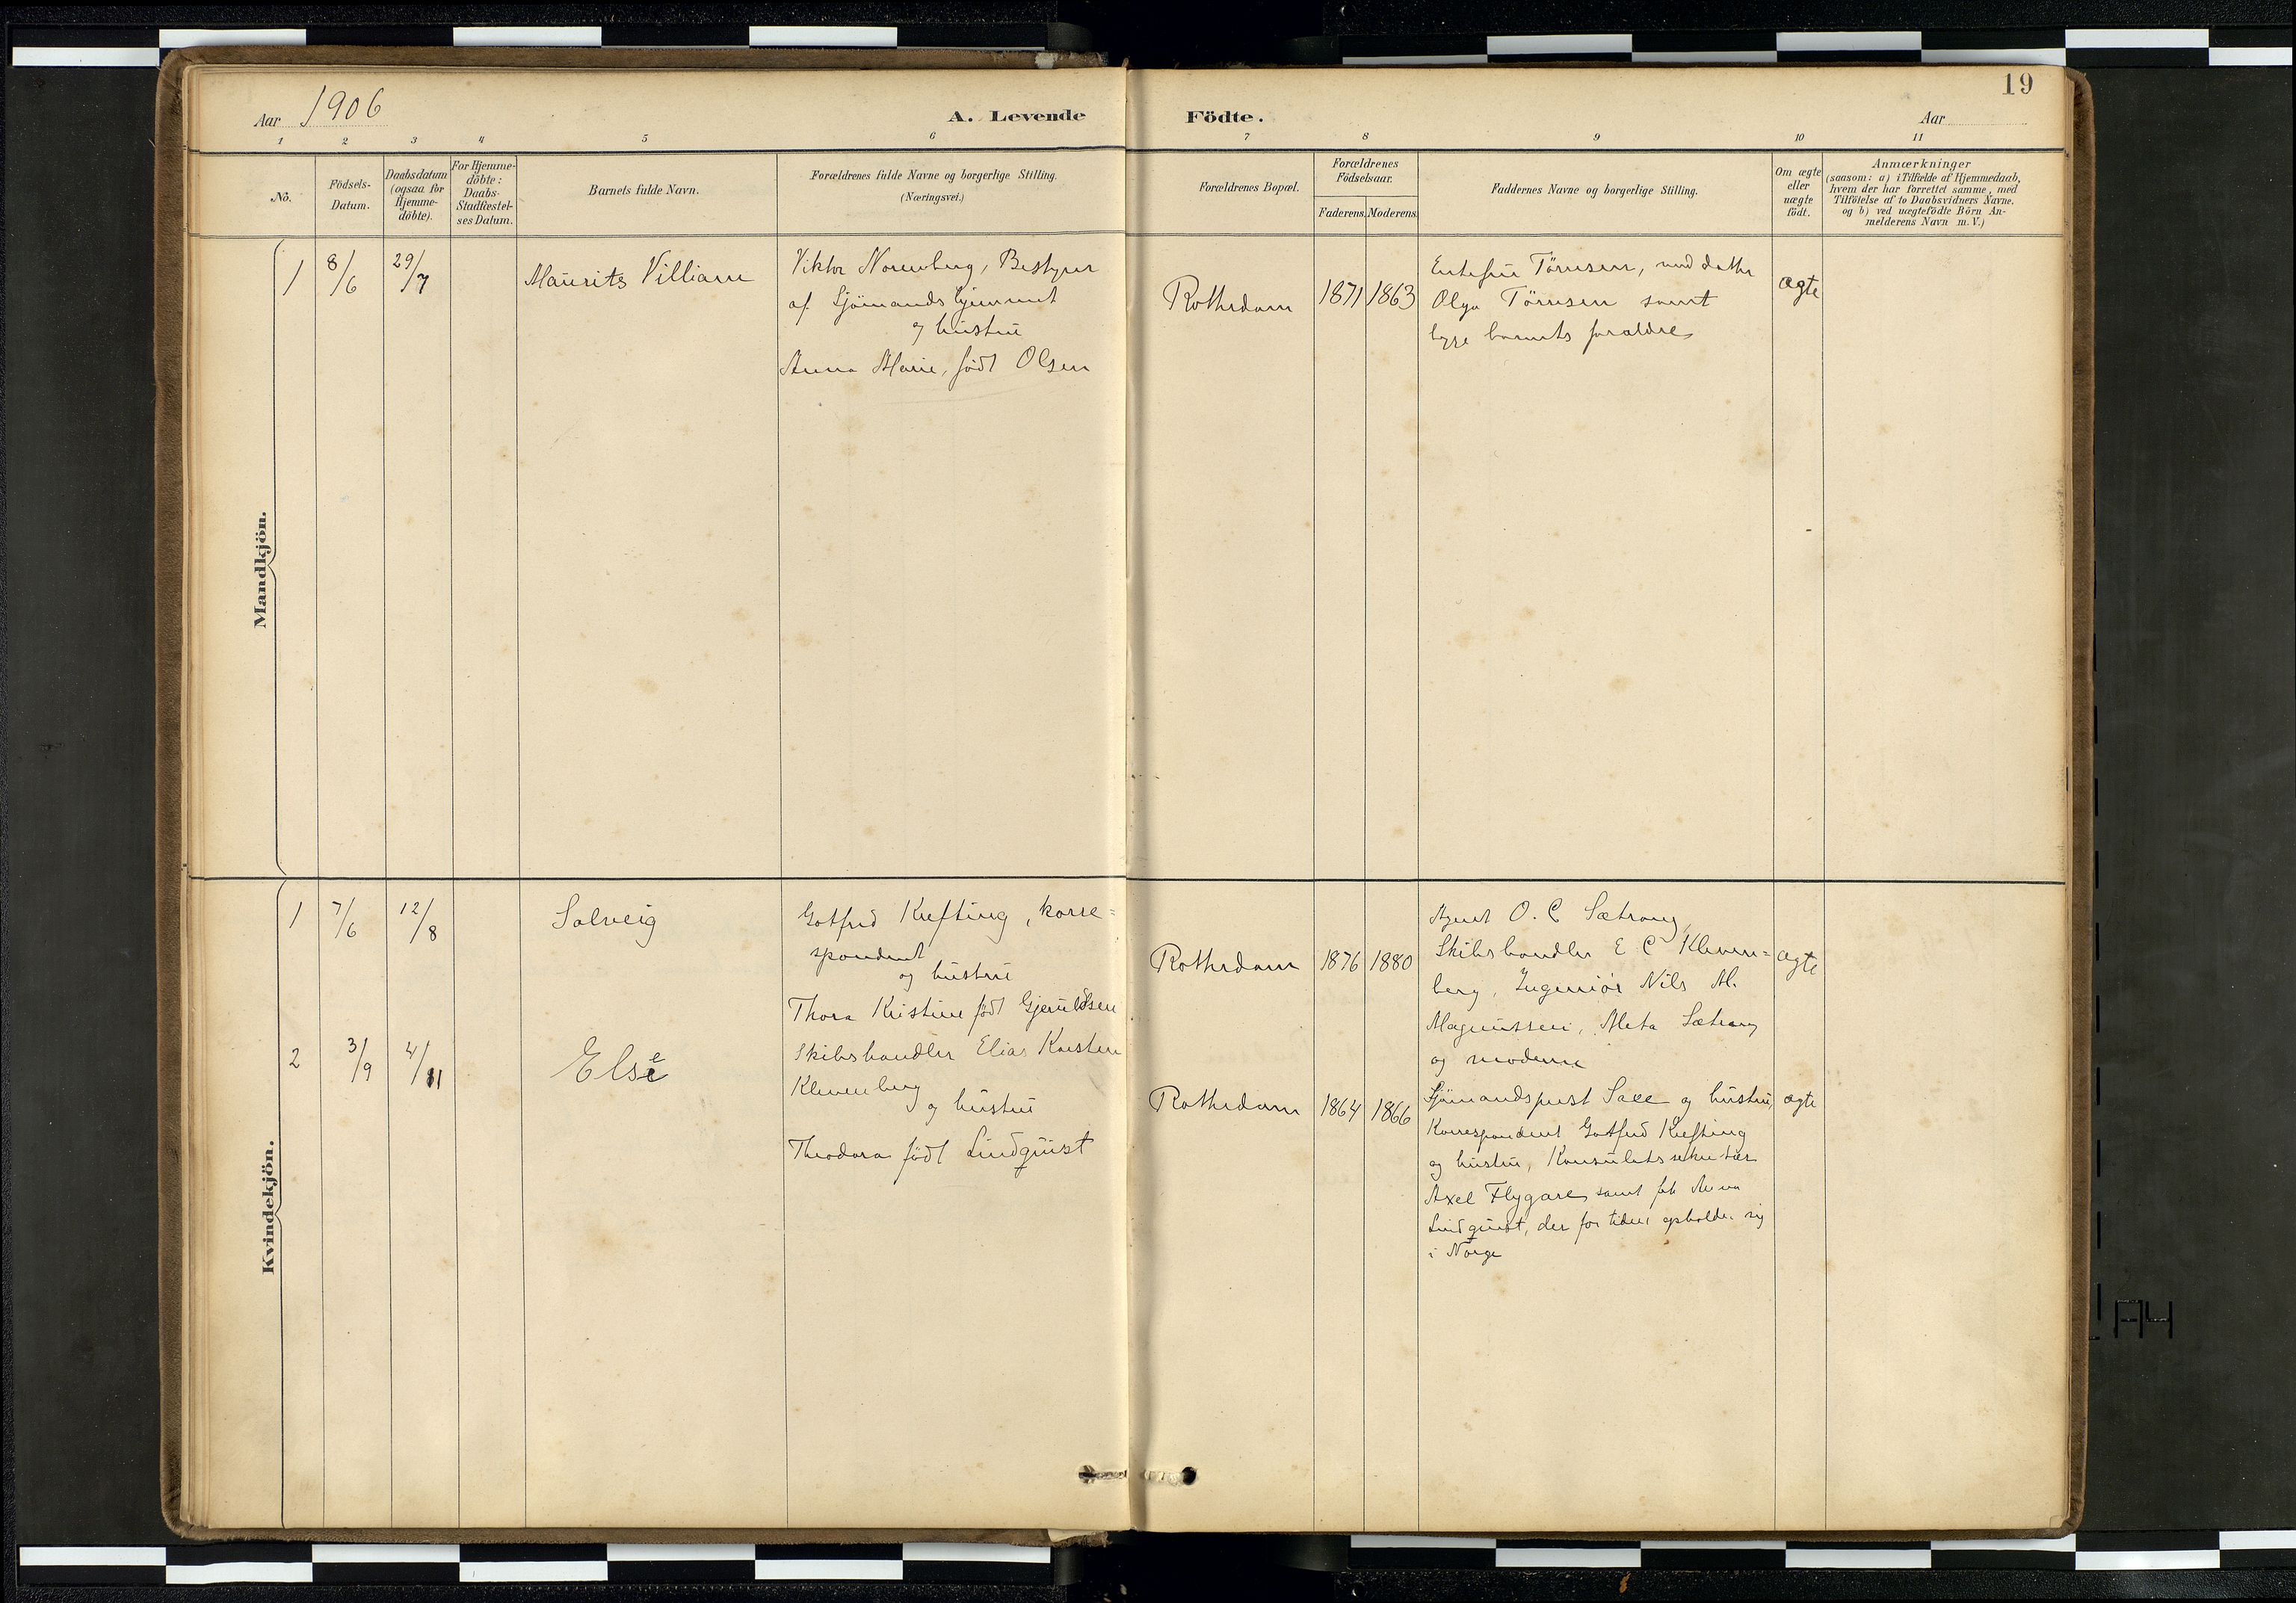 19
Aar 1906
A. Levende
Födte.
Aar
1 2 3 4 5 6 7 8 9 10 11
No.
Födsels-
Datum.
Daabsdatum
(ogsaa for
Hjemme-
döbte).
For Hjemme-
döbte:
Daabs-
Stadfæstel-
ses Datum.
Barnets fulde Navn.
Forældrenes fulde Navne og borgerlige Stilling.
(Næringsvei.)
Forældrenes Bopæl.
Forældrenes
Födselsaar.
Faderens. Moderens.
Faddernes Navne og borgerlige Stilling.
Om ægte
eller
uægte
födt.
Anmærkninger
(saasom: a) i Tilfælde af Hjemmedaab,
hvem der har forrettet samme, med
Tilföielse af to Daabsvidners Navne.
og b) ved uægtefödte Börn An-
melderens Navn m. V.)
Mandkjön.
1
8/6
29/7
Maurits Villiam
Viktor Norenberg, Bestyrer
af Sjömandshjemmet
og hustru
Anna Marie, födt Olsen
Rotterdam
1871
1863
Enkefru Törnsen, med datter
Olga Törnsen samt
begge barnets forældre
ægte
Kvindekjön.
1
7/6
12/8
Solveig
Gotfred Krefting, korre=
spondent
og hustru
Thora Kristine födt Gjeruldsen
Rotterdam
1876
1880
Agent O. C Sætrang,
Skibshandler E C Kleven=
berg, Ingeniör Nils M.
Magnussen, Meta Sætrang
og moderen
ægte
2
3/9
4/11
Else
Skibshandler Elias Karsten
Klevenberg
og hustru
Theodora födt Lindquist
Rotterdam
1864
1866
Sjömandsprest Saxe og hustru,
Korrespondent Gotfred Krefting
og hustru, Konsulatssekretær
Axel Flygare, samt frk Anna
Lindquist, der for tiden opholder sig
i Norge
ægte